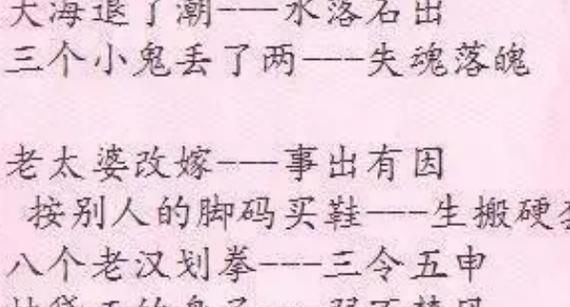 大海退了潮---水落石出
三个小鬼丢了两---失魂落魄
老太婆改嫁---事出有因
按别人的脚码买鞋---生搬硬套
八个老汉划拳---三令五申